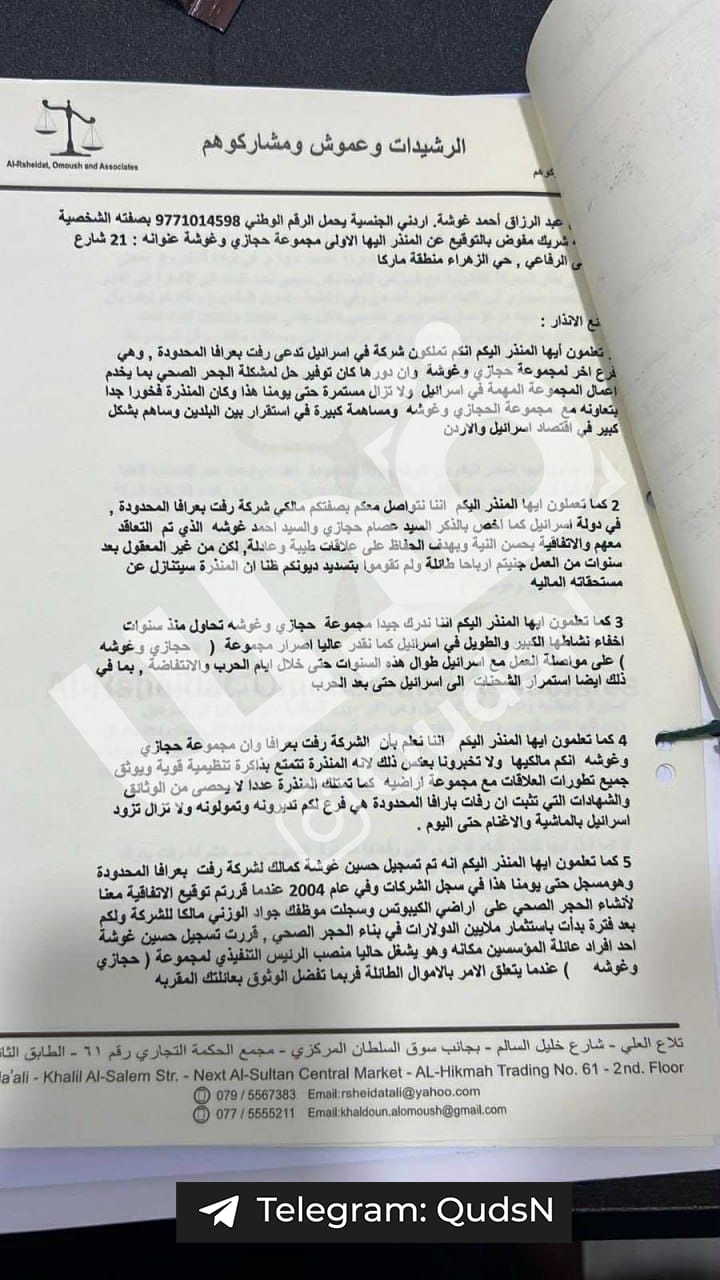 الرشيدات وعموش ومشاركوهم
Al-Rsheidat, Omoush and Associates
عبد الرزاق أحمد غوشة. اردني الجنسية يحمل الرقم الوطني 9771014598 بصفته الشخصية
شريك مفوض بالتوقيع عن المنذر اليها الاولى مجموعة حجازي وغوشة عنوانه : 21 شارع
الرفاعي , حي الزهراء منطقة ماركا
الانذار :
تعلمون أيها المنذر اليكم انكم تملكون شركة في اسرائيل تدعى رفت بعرافا المحدودة , وهي
فرع اخر لمجموعة حجازي وغوشة وان دورها كان توفير حل لمشكلة الحجر الصحي بما يخدم
اعمال المجموعة المهمة في اسرائيل ولا تزال مستمرة حتى يومنا هذا وكان المنذرة فخورا جدا
بتعاونه مع مجموعة الحجازي وغوشه ومساهمة كبيرة في استقرار بين البلدين وساهم بشكل
كبير في اقتصاد اسرائيل والاردن
2 كما تعملون ايها المنذر اليكم اننا نتواصل معكم بصفتكم مالكي شركة رفت بعرافا المحدودة ,
في دولة اسرائيل كما اخص بالذكر السيد عصام حجازي والسيد احمد غوشه الذي تم التعاقد
معهم والاتفاقية بحسن النية وبهدف الحفاظ على علاقات طيبة وعادلة, لكن من غير المعقول بعد
سنوات من العمل جنيتم ارباحا طائلة ولم تقوموا بتسديد ديونكم ظنا ان المنذرة سيتنازل عن
مستحقاته الماليه
3 كما تعلمون ايها المنذر اليكم اننا ندرك جيدا مجموعة حجازي وغوشه تحاول منذ سنوات
اخفاء نشاطها الكبير والطويل في اسرائيل كما نقدر عاليا اصرار مجموعة ( حجازي وغوشه
) على مواصلة العمل مع اسرائيل طوال هذه السنوات حتى خلال ايام الحرب والانتفاضة , بما في
ذلك ايضا استمرار الشحنات الى اسرائيل حتى بعد الحرب
4 كما تعلمون ايها المنذر اليكم اننا نعلم بأن الشركة رفت بعرافا وان مجموعة حجازي
وغوشه انكم مالكيها ولا تخبرونا بعكس ذلك لانه المنذرة تتمتع بذاكرة تنظيمية قوية ويوثق
جميع تطورات العلاقات مع مجموعة اراضيه كما تمتلك المنذرة عددا لا يحصى من الوثائق
والشهادات التي تثبت ان رفات بارافا المحدودة هي فرع لكم تديرونه وتمولونه ولا تزال تزود
اسرائيل بالماشية والاغنام حتى اليوم .
5 كما تعلمون ايها المنذر اليكم انه تم تسجيل حسين غوشة كمالك لشركة رفت بعرافا المحدودة
وهومسجل حتى يومنا هذا في سجل الشركات وفي عام 2004 عندما قررتم توقيع الاتفاقية معنا
لأنشاء الحجر الصحي على اراضي الكيبوتس وسجلت موظفك جواد الوزني مالكا للشركة ولكم
بعد فترة بدأت باستثمار ملايين الدولارات في بناء الحجر الصحي , قررت تسجيل حسين غوشة
احد افراد عائلة المؤسسين مكانه وهو يشغل حاليا منصب الرئيس التنفيذي لمجموعة ( حجازي
وغوشه ) عندما يتعلق الامر بالاموال الطائلة فربما تفضل الوثوق بعائلتك المقربه
تلاع العلي - شارع خليل السالم - بجانب سوق السلطان المركزي - مجمع الحكمة التجاري رقم ٦١ - الطابق
- Khalil Al-Salem Str. - Next Al-Sultan Central Market - AL-Hikmah Trading No. 61 - 2nd. Floor
079 / 5567383 Email:rsheidatali@yahoo.com
077 / 5555211 Email:khaldoun.alomoush@gmail.com
Telegram: QudsN